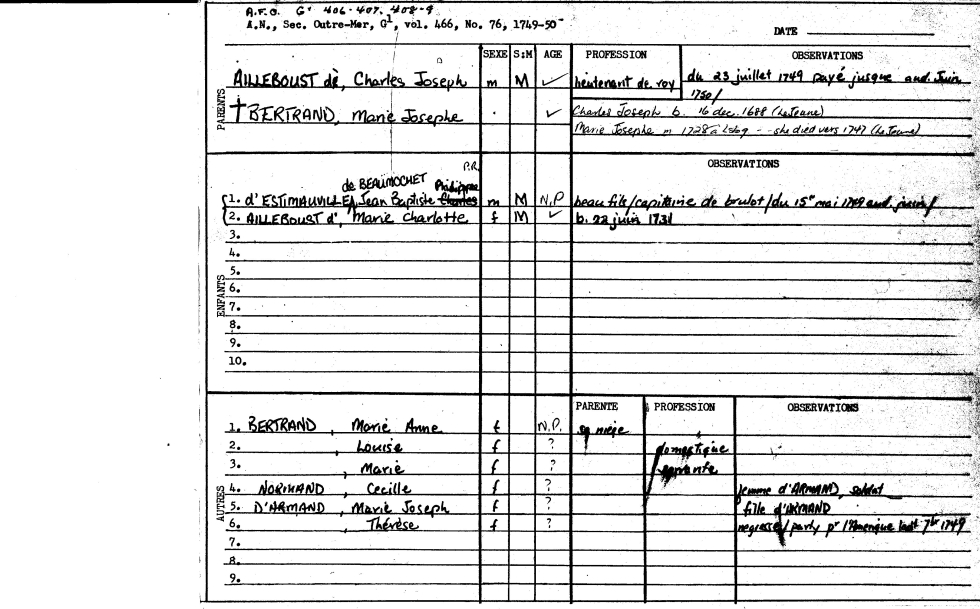 A.F.O. G¹ 406-407, 408-9
A.N., Sec. Outre-Mer, G¹, vol. 466, No. 76, 1749-50
DATE
SEXE S:M AGE PROFESSION OBSERVATIONS
PARENTS
AILLEBOUST de, Charles Joseph m M ✓ lieutenant de roy du 23 juillet 1749 payé jusque aud. Juin 1750/
† BERTRAND, Marie Josephe ✓ Charles Joseph b. 16 dec. 1688 (LeJeune)
Marie Josephe m 1728 à Lsbg -- she died vers 1747 (LeJeune)
OBSERVATIONS
ENFANTS
P.R.
de BEAUMOCHET Philippe
1. d'ESTIMAUVILLE, Jean Baptiste Charles m M N.P beau fils/capitaine de brulot/du 15e mai 1749 aud.
2. AILLEBOUST d', Marie Charlotte f M ✓ b. 22 juin 1731
3.
4.
5.
6.
7.
8.
9.
10.
PARENTE PROFESSION OBSERVATIONS
AUTRES
1. BERTRAND, Marie Anne f N.P. sa nièce
2. , Louise f ? domestique
3. , Marie f ? servante
4. NORMAND, Cecille f ? femme d'ARMAND, soldat
5. D'ARMAND, Marie Joseph f ? fille d'ARMAND
6. , Thérèse f ? negresse/party pr l'Amerique 7br 1749
7.
8.
9.